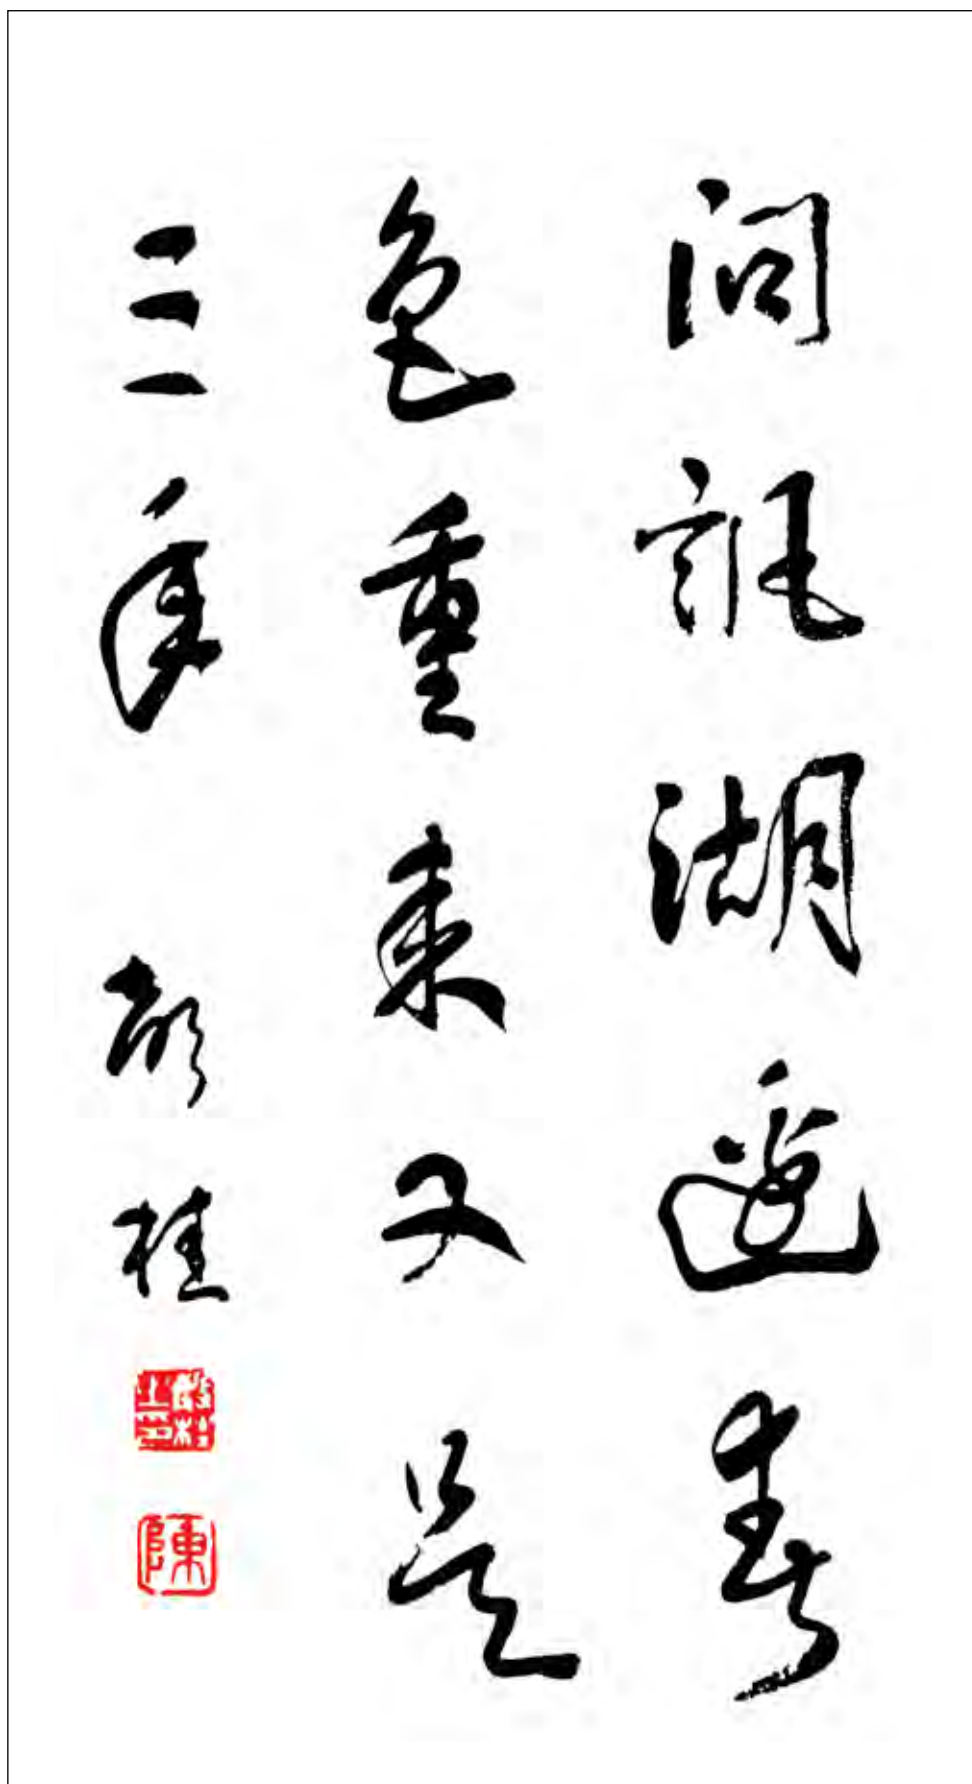 問訊湖邊春
色重來又是
三年 桂
陳